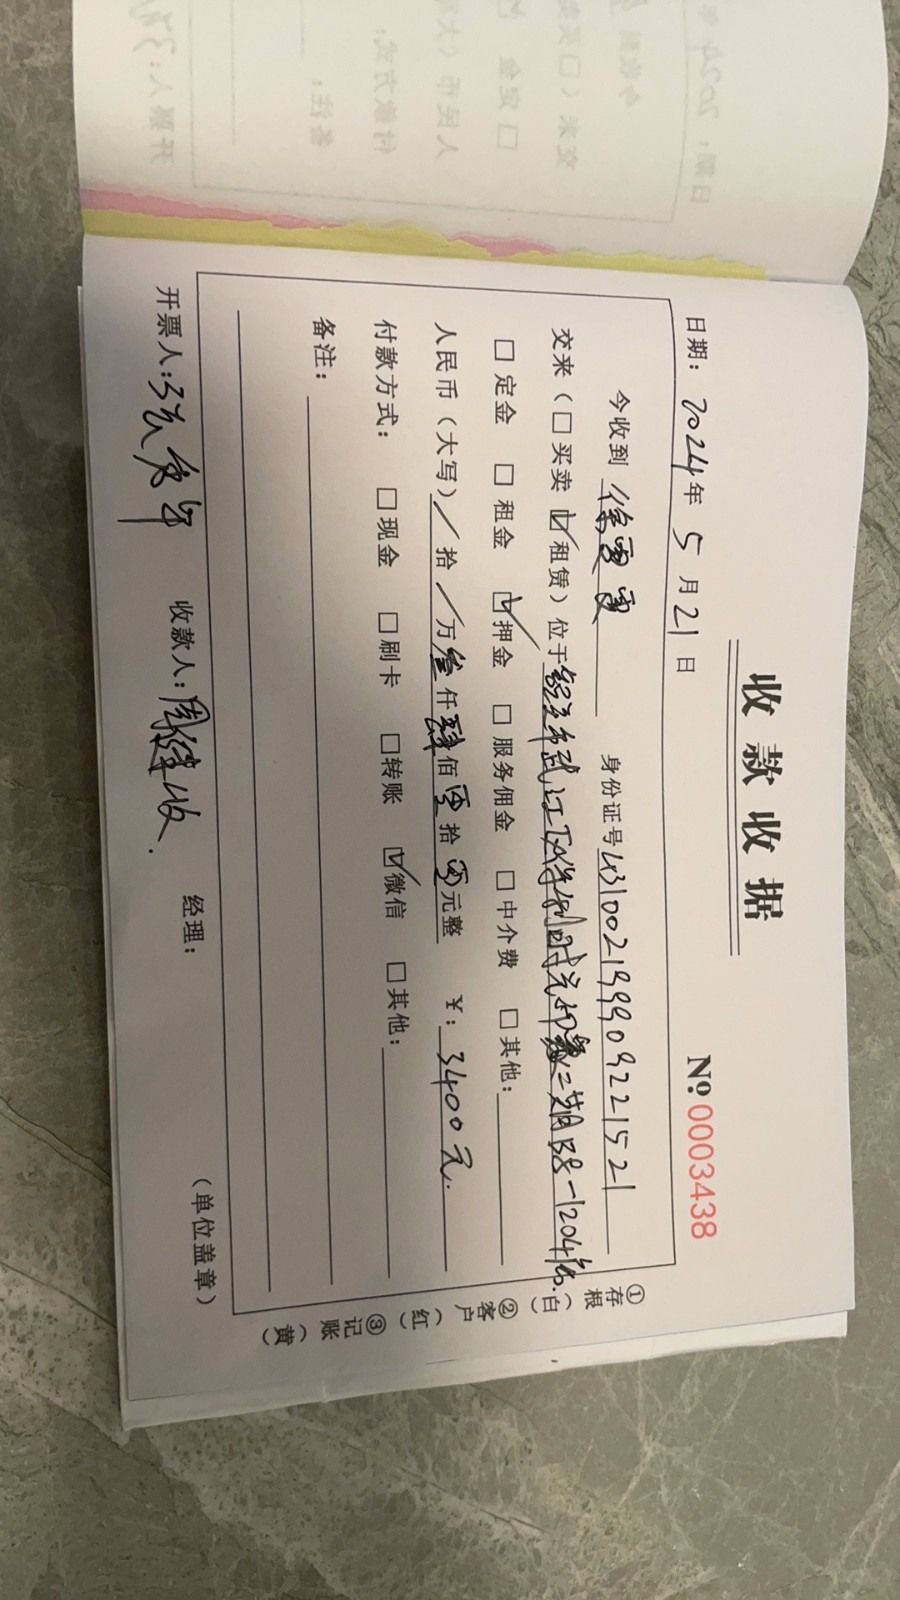 收款收据
日期：2024年5月21日 №0003438
今收到 徐雪雯 身份证号 431002199909221521
交来（□买卖 ☑租赁）位于 二期B8-1204
□定金 □租金 ☑押金 □服务佣金 □中介费 □其他：
人民币（大写）/拾/万叁仟肆佰零拾零元整 ￥：3400元.
付款方式： □现金 □刷卡 □转账 ☑微信 □其他：
备注：
开票人： 收款人： 经理： （单位盖章）
①存根（白） ②客户（红） ③记账（黄）